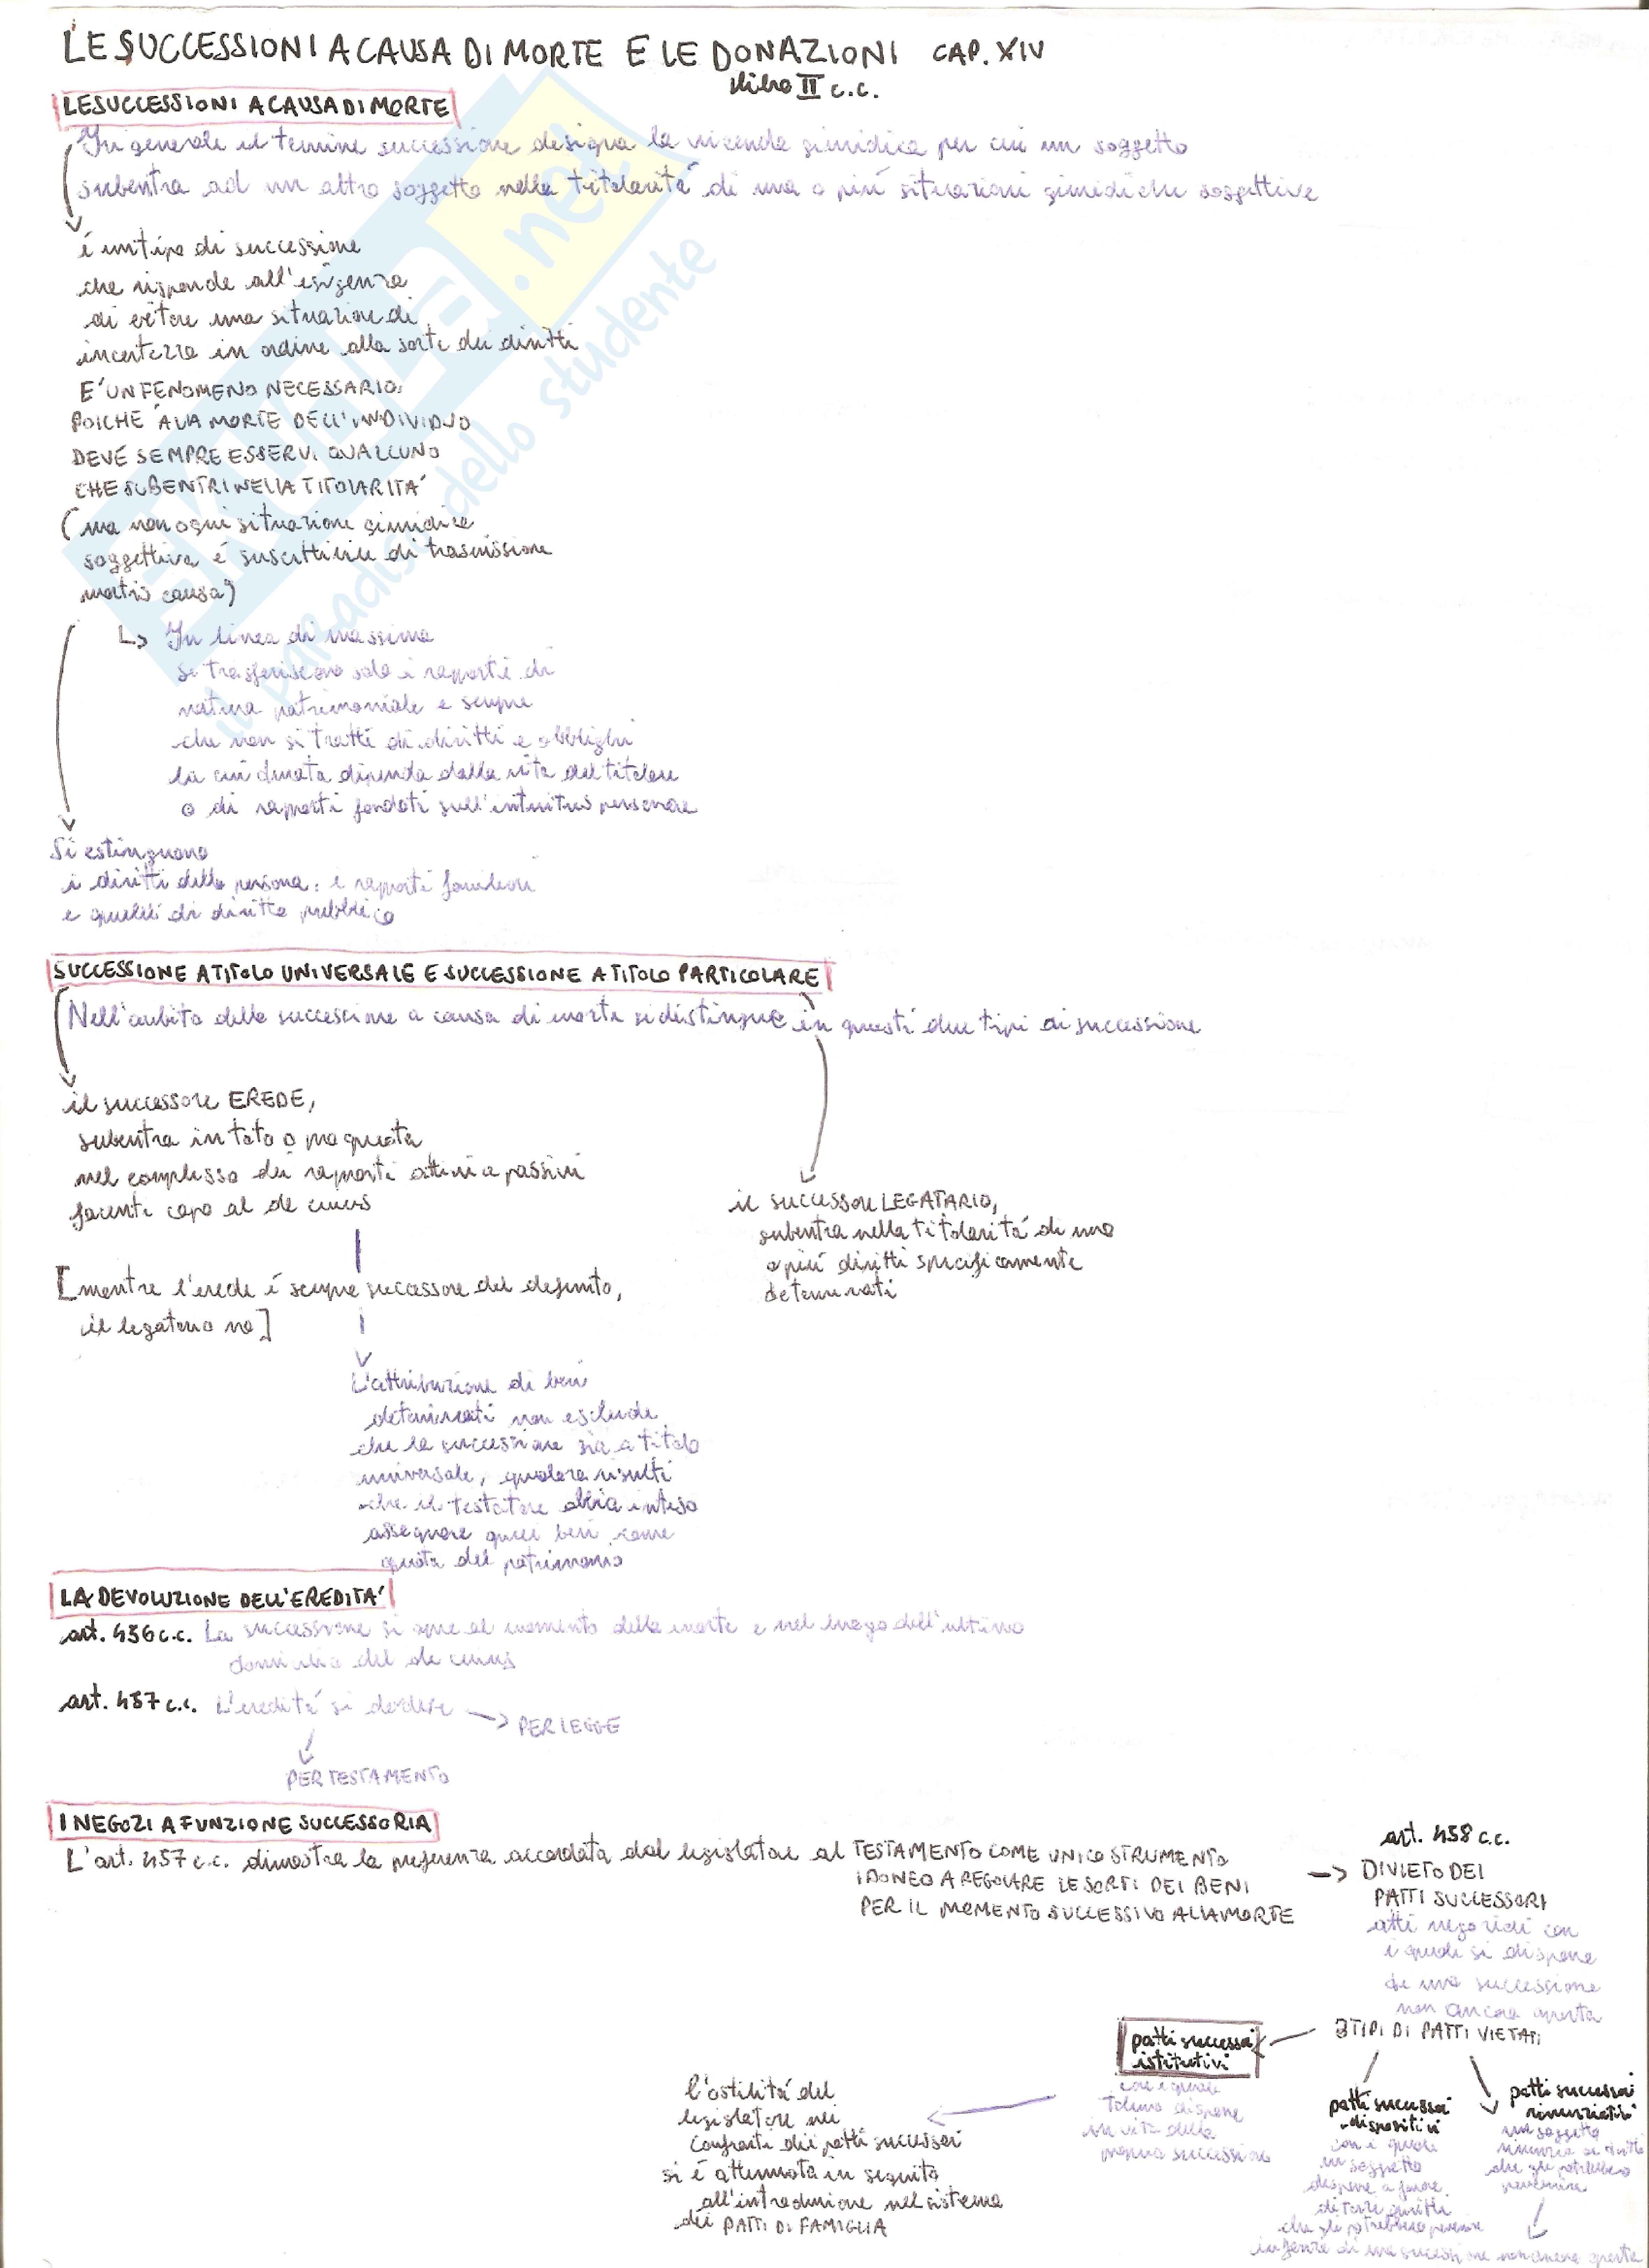 LE SUCCESSIONI A CAUSA DI MORTE E LE DONAZIONI CAP. XIV
libro II c.c.
LE SUCCESSIONI A CAUSA DI MORTE
In generale il termine successione designa la vicenda giuridica per cui un soggetto
subentra ad un altro soggetto nella titolarità di una o più situazioni giuridiche soggettive
é un tipo di successione
che risponde all'esigenza
di evitare una situazione di
incertezza in ordine alla sorte dei diritti
E' UN FENOMENO NECESSARIO
POICHÉ ALLA MORTE DELL'INDIVIDUO
DEVE SEMPRE ESSERVI QUALCUNO
CHE SUBENTRI NELLA TITOLARITA'
(ma non ogni situazione giuridica
soggettiva é suscettibile di trasmissione
mortis causa)
↳ In linea di massima
si trasferiscono solo i rapporti di
natura patrimoniale e sempre
che non si tratti di diritti e obblighi
la cui durata dipenda dalla vita del titolare
o di rapporti fondati sull'intuitus personae
Si estinguono
i diritti della persona, i rapporti familiari
e quelli di diritto pubblico
SUCCESSIONE A TITOLO UNIVERSALE E SUCCESSIONE A TITOLO PARTICOLARE
Nell'ambito della successione a causa di morte si distingue in questi due tipi di successione
il successore EREDE,
subentra in toto o pro quota
nel complesso dei rapporti attivi e passivi
facenti capo al de cuius
il successore LEGATARIO,
subentra nella titolarità di uno
o più diritti specificamente
determinati
[mentre l'erede é sempre successore del defunto,
il legatario no]
L'attribuzione di beni
determinati non esclude
che la successione sia a titolo
universale, qualora risulti
che il testatore abbia inteso
assegnare quei beni come
quota del patrimonio
LA DEVOLUZIONE DELL'EREDITA'
art. 456 c.c. La successione si apre al momento della morte e nel luogo dell'ultimo
domicilio del de cuius
art. 457 c.c. L'eredità si devolve → PER LEGGE
PER TESTAMENTO
I NEGOZI A FUNZIONE SUCCESSORIA
L'art. 457 c.c. dimostra la preferenza accordata dal legislatore al TESTAMENTO COME UNICO STRUMENTO
IDONEO A REGOLARE LE SORTI DEI BENI
PER IL MOMENTO SUCCESSIVO ALLA MORTE
art. 458 c.c.
→ DIVIETO DEI
PATTI SUCCESSORI
atti negoziali con
i quali si dispone
di una successione
non ancora aperta
3 TIPI DI PATTI VIETATI
patti successori
istitutivi
con i quali
taluno dispone
in vita della
propria successione
l'ostilità del
legislatore nei
confronti dei patti successori
si é attenuata in seguito
all'introduzione nel sistema
dei PATTI DI FAMIGLIA
patti successori
dispositivi
con i quali
un soggetto
dispone a favore
di terzi diritti
che gli potrebbero pervenire
patti successori
rinunziativi
un soggetto
rinunzia ai diritti
che gli potrebbero
pervenire
in forza di una successione non ancora aperta